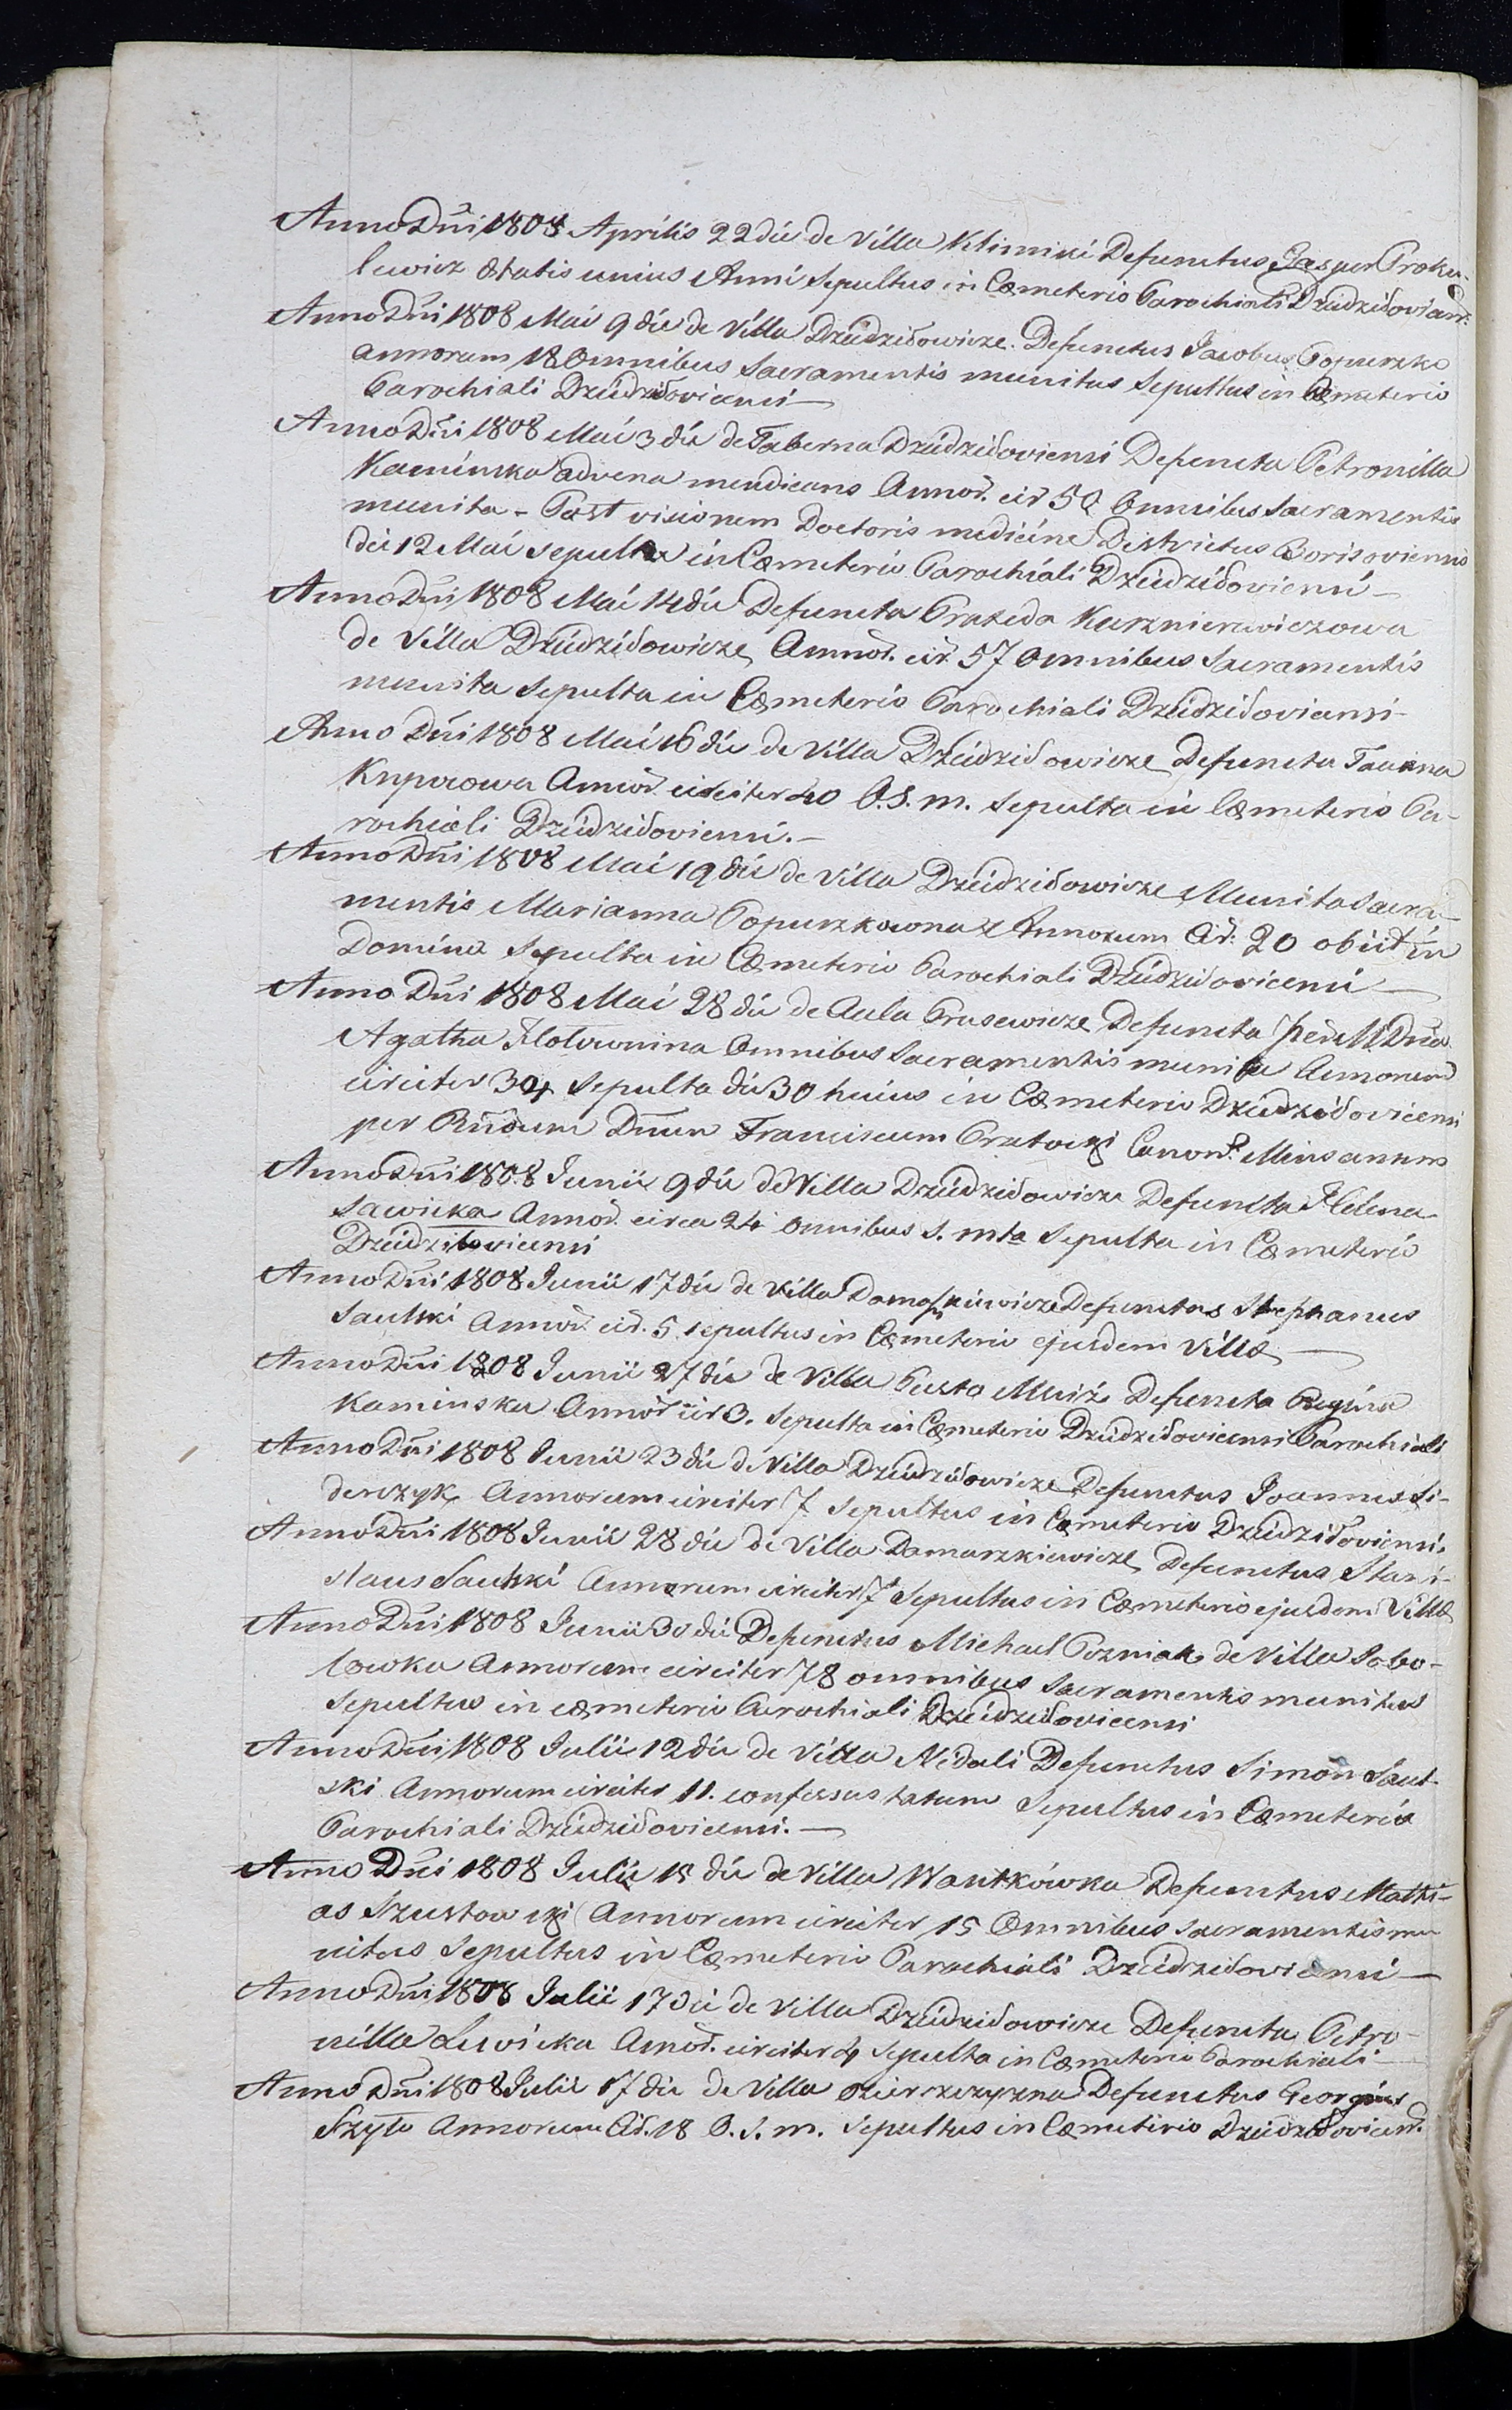 Anno Dñi 1808 Aprilis 22 die de Villa Klimiki Defunctus Gasper Proku-
lewicz Ætatis unius Anni Sepultus in Cæmeterio Parochiali Dziedziłoviens:
Anno Dñi 1808 Mai 9 die de Villa Dziedziłowicze. Defunctus Jacobus Popuszko
annorum 18 Omnibus Sacramentis munitus Sepultus in Cæmeterio
Parochiali Dziedziłoviensi —
Anno Dñi 1808 Mai 3 die de Taberna Dziedziłoviensi Defuncta Petronilla
Kaminska advena mendicans Annor. cir 50 Omnibus Sacramentis
munita - Post visionem Doctoris medicine Districtus Borisoviensis
die 12 Mai sepulta in Cæmeterio Parochiali Dziedziłoviensi —
Anno Dñi 1808 Mai 14 die Defuncta Praxeda Kuznierewiczowa
de Villa Dziedziłowicze Annor. cir. 57 Omnibus Sacramentis
munita Sepulta in Cæmeterio Parochiali Dziedziłoviensi -
Anno Dñi 1808 Mai 16 die de Villa Dziedziłowicze Defuncta
Annor. circiter 40 O. S. m. Sepulta in Cæmeterio Pa-
rochiali Dziedziłoviensi. —
Anno Dñi 1808 Mai 19 die de Villa Dziedziłowicze Munita Sacra-
mentis Marianna Popuszkowna Annorum Cir: 20 obiit in
Domino Sepulta in Cæmeterio Parochiali Dziedziłoviensi —
Anno Dñi 1808 Mai 28 die de Aula Prusewicze Defuncta Dña
Agatha Omnibus Sacramentis munita Annorum
circiter 34 Sepulta die 30 huius in Cæmeterio Dziedziłoviensi
per Rñdum Dnum Franciscum Canon.
Anno Dñi 1808 Junii 9 die de Villa Dziedziłowicze Defuncta Helena
Sawicka Annor. circa 24 Omnibus S. mta Sepulta in Cæmeterio
Dziedziłoviensi
Anno Dñi 1808 Junii 17 die de Villa Defunctus Stephanus
Saulski Annor. cir. 5 sepultus in Cæmeterio ejusdem Villæ —
Anno Dñi 1808 Junii 27 die de Villa Pusta Defuncta Regina
Kaminska Annor cir 3. Sepulta in Cæmeterio Dziedziłoviensi Parochiali
Anno Dñi 1808 Junii 23 die de Villa Dziedziłowicze Defunctus Joannes Si-
derczyk Annorum circiter 7 Sepultus in Cæmeterio Dziedziłoviensi.
Anno Dñi 1808 Junii 28 die de Villa Damaszkiewicze Defunctus Stani-
slaus Saulski Annorum circiter 7 Sepultus in Cæmeterio ejusdem Villæ
Anno Dñi 1808 Junii 30 die Defunctus Michael Pozniak de Villa Sobo-
lowka Annorum circiter 78 omnibus Sacramentis munitus
Sepultus in cæmeterio Parochiali Dziedziłoviensi
Anno Dñi 1808 Julii 12 die de Villa Nidali Defunctus Simon Saul-
ski Annorum circiter 11. confessus tatum Sepultus in Cæmeterio
Parochiali Dziedziłoviensi. —
Anno Dñi 1808 Julii 15 die de Villa Wankówka Defunctus Mathi-
as Szustowski Annorum circiter 15 Omnibus Sacramentis mu
nitus Sepultus in Cæmeterio Parochiali Dziedziłoviensi —
Anno Dñi 1808 Julii 17 die de Villa Dziedziłowicze Defuncta Petro-
nilla Lewicka Anor. circiter 4 Sepulta in Cæmeterio Parochiali
Anno Dñi 1808 Julii 17 die de Villa Defunctus Georgius
Szyło Annorum Cir. 18 O. S. m. Sepultus in Cæmeterio Dziedziłoviens.